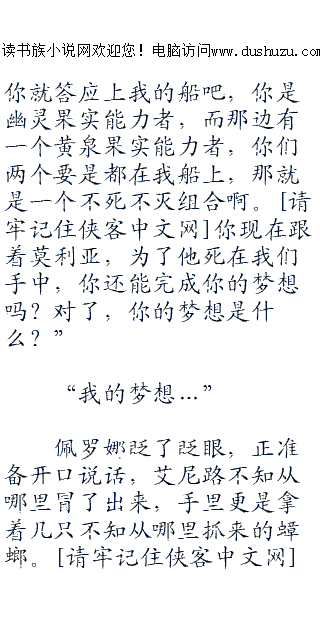 读书族小说网欢迎您！电脑访问www.dushuzu.com
你就答应上我的船吧，你是
幽灵果实能力者，而那边有
一个黄泉果实能力者，你们
两个要是都在我船上，那就
是一个不死不灭组合啊。[请
牢记住侠客中文网]你现在跟
着莫利亚，为了他死在我们
手中，你还能完成你的梦想
吗？对了，你的梦想是什
么？”
“我的梦想…”
佩罗娜眨了眨眼，正准
备开口说话，艾尼路不知从
哪里冒了出来，手里更是拿
着几只不知从哪里抓来的蟑
螂。[请牢记住侠客中文网]